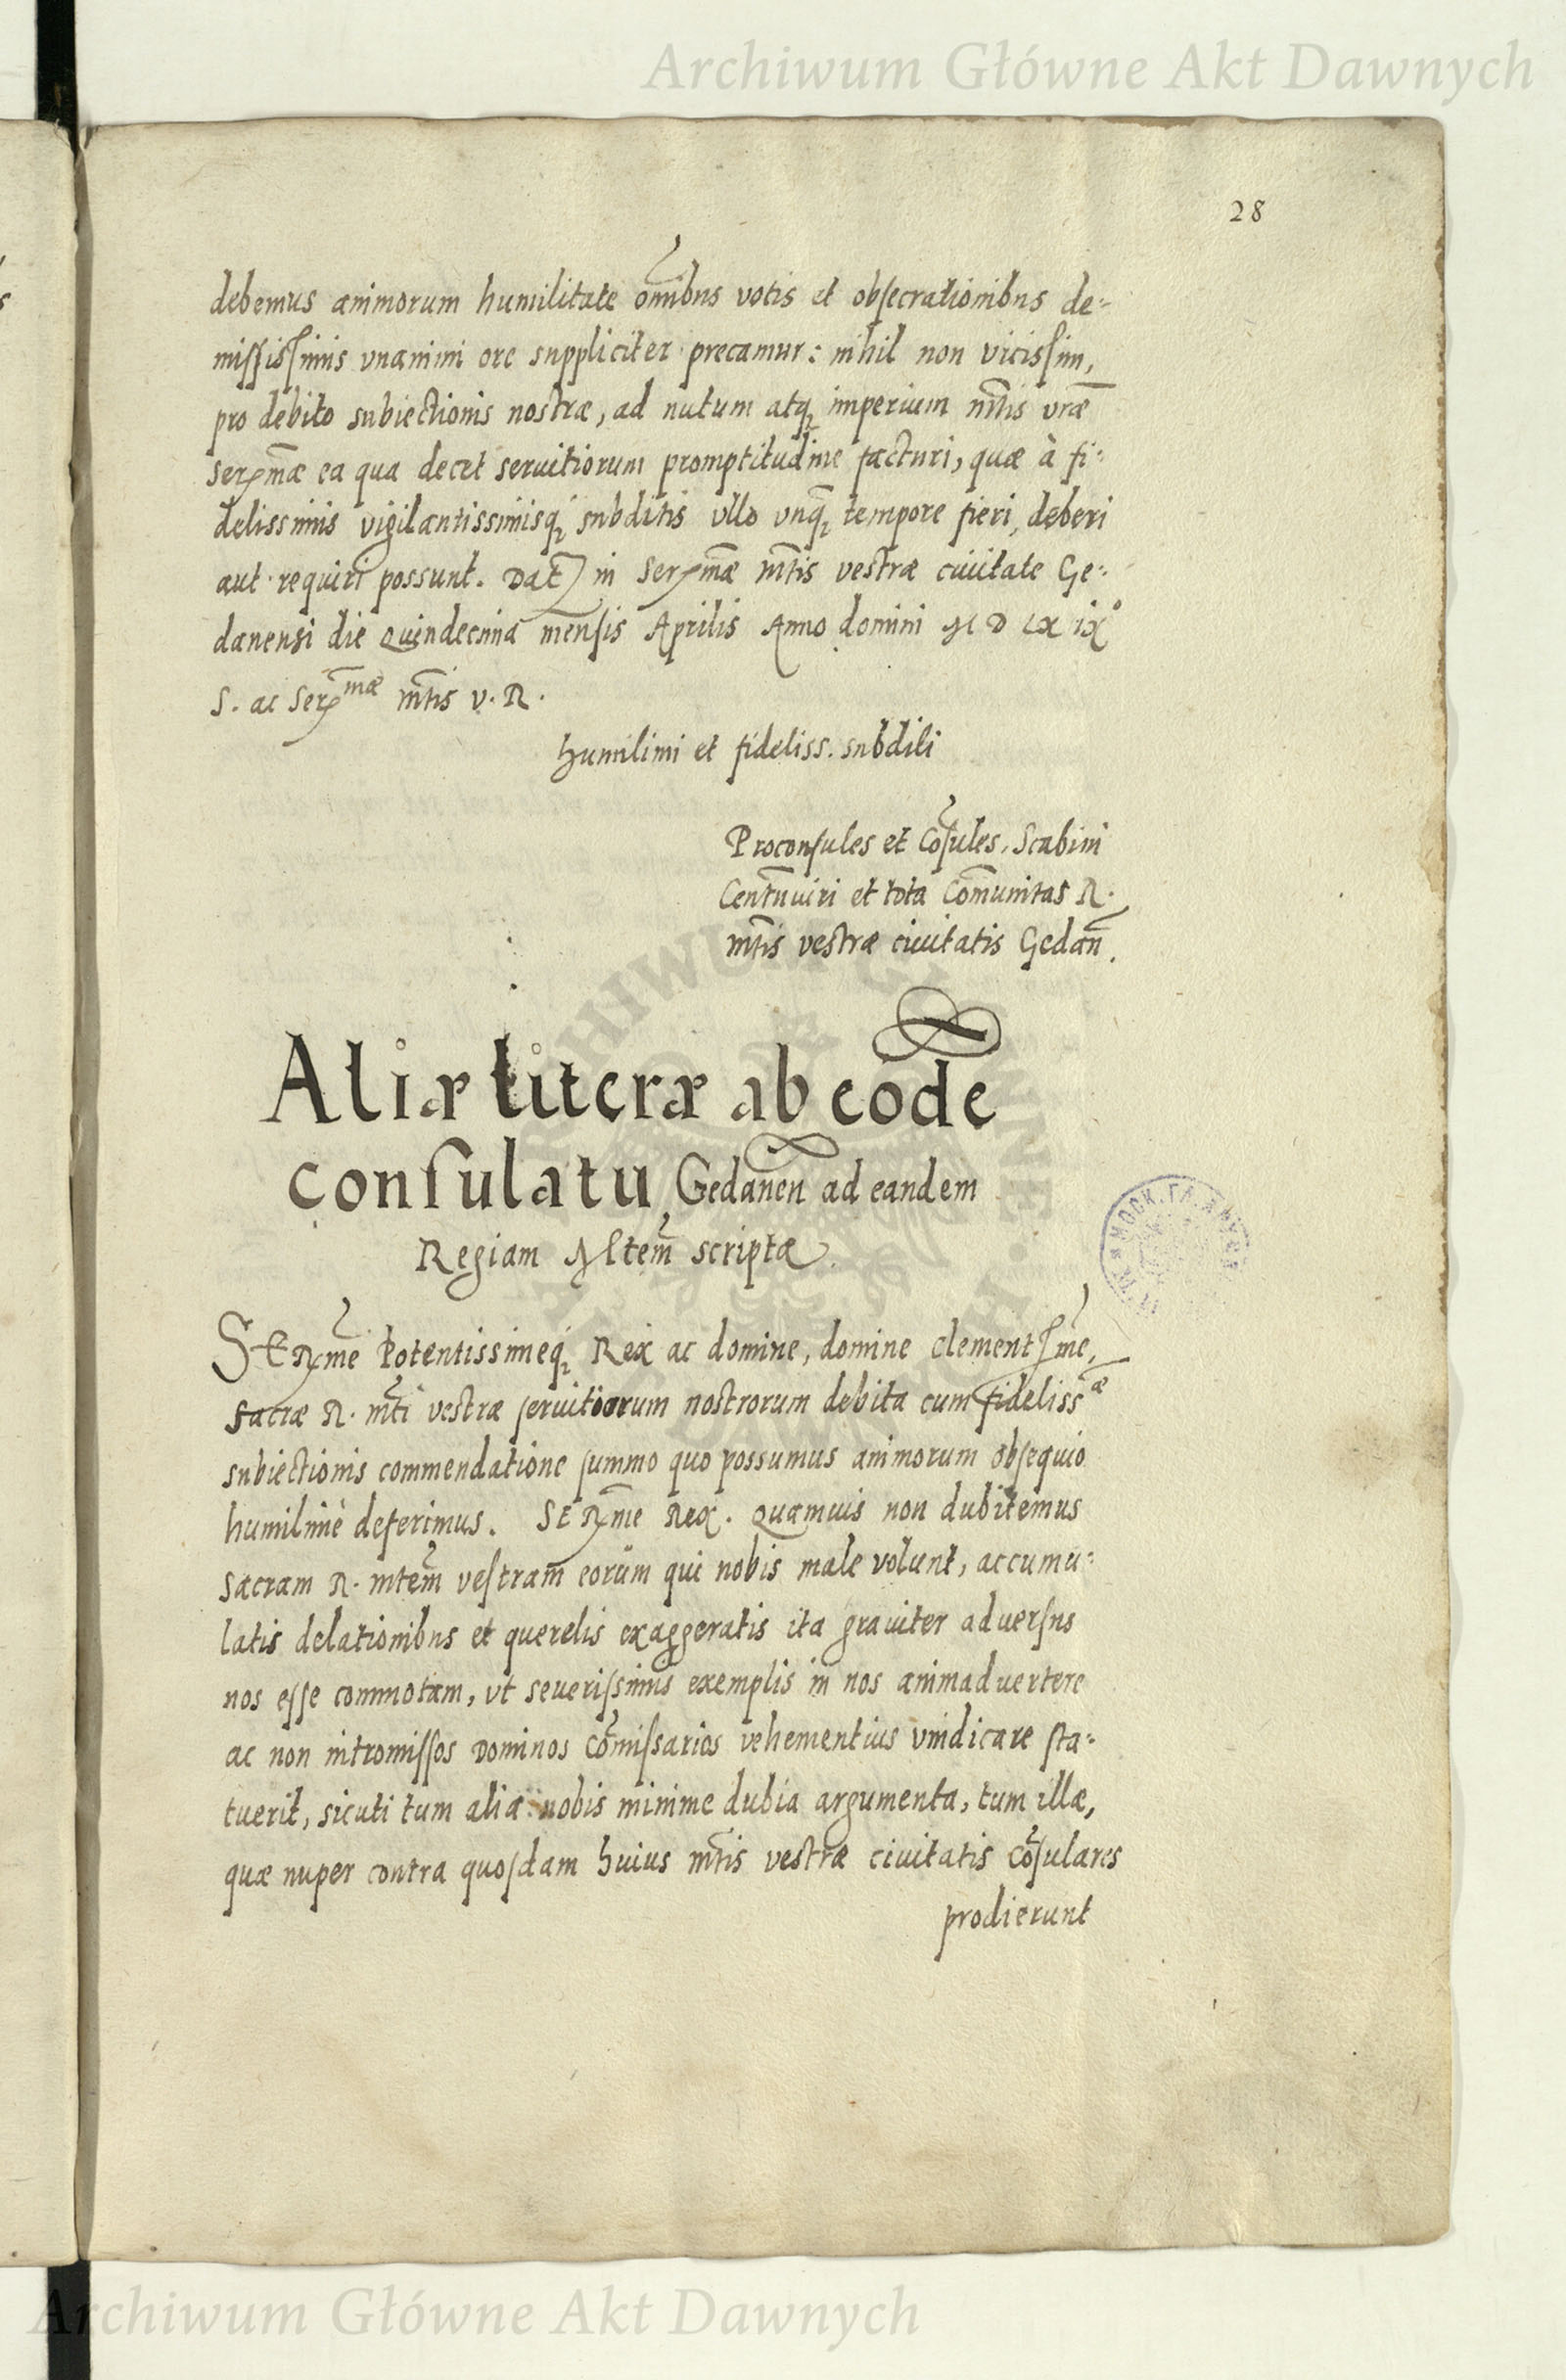 Archiwum Główne Akt Dawnych
28
debemus animorum humilitate om̃ibus votis et obſecrationibus de-
miſſisſimis vnanimi ore suppliciter precamur: nihil non vicisſim,
pro debito subiectionis nostræ, ad nutum atq; imperium mt̃is vr̃æ
Serm̃æ ea qua decet seruitiorum promptitudine facturi, quæ à fi-
delissimis vigilantissimisq; subditis vllo vnq̃ tempore fieri, deberi
aut requiri possunt. Dat̃ in Serm̃æ mt̃is vestræ ciuitate Ge-
danensi die Quindecima mensis Aprilis Anno domini M D LX ix°
S. ac Serm̃æ mt̃is v. R.
Humilimi et fideliss. subditi
Proconſules et Cõſules, Scabini
Cent̃uuiri et tota Com̃unitas R.
mt̃is vestræ ciuitatis Gedañ.
Aliæ literæ ab eõdẽ
conſulatu Gedaneñ ad eandem
Regiam Mtem̃ scriptæ
SERm̃e Potentissimeq; Rex ac domine, domine clementſm̃e,
Sacræ R. mt̃i vestræ ſeruitiorum nostrorum debita cum fidelissæ
subiectionis commendatione ſummo quo possumus animorum obſequio
humilime deferimus. SERm̃e Rex. Quamuis non dubitemus
Sacram R. mtem̃ veſtram eorum qui nobis male volunt, accumu-
latis delationibus et querelis exaggeratis ita grauiter aduerſus
nos eſſe commotam, vt seueriſsimis exemplis in nos animaduertere
ac non intromiſſos Dominos Com̃iſsarios vehementius vindicare ſta-
tuerit, sicuti tum alia nobis minime dubia argumenta, tum illæ,
quæ nuper contra quoſdam huius mt̃is vestræ ciuitatis Cõſulares
prodierunt
Archiwum Główne Akt Dawnych